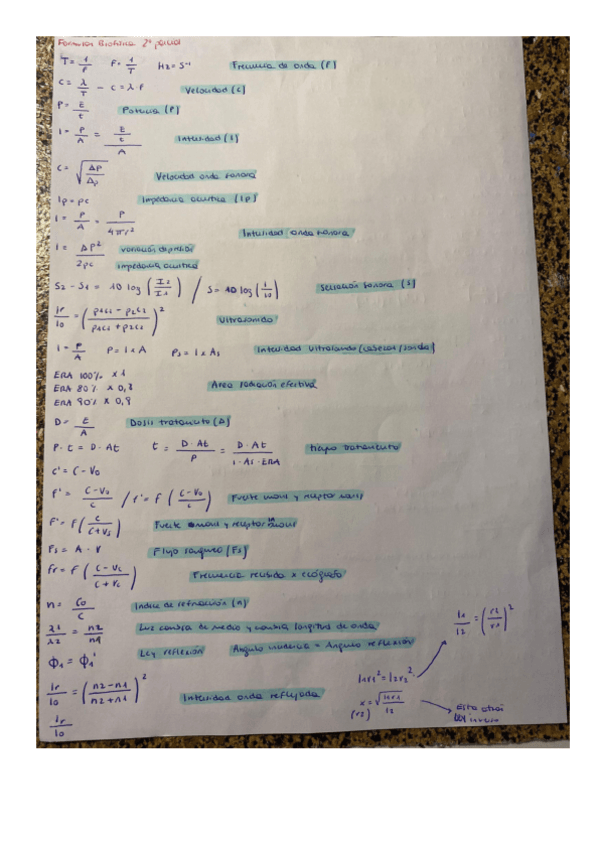 Formulas Biofísica 2º parcial
T = 1/f   F = 1/T   Hz = s⁻¹   Frecuencia de onda (f)
c = λ/T - c = λ·f   Velocidad (c)
P = E/t   Potencia (P)
I = P/A = (E/t)/A   Intensidad (I)
c = √(Δp/Δρ)   Velocidad onda sonora
Ip = ρc   Impedancia acustica (Ip)
I = P/A = P/4πr²   Intensidad onda sonora
I = ΔP²/2ρc   variación de presión
impedancia acustica
S2 - S1 = 10 log (I2/I1) / S = 10 log (I/I0)   Sensación sonora (S)
Ir/I0 = (ρ1c1 - ρ2c2/ρ1c1 + ρ2c2)²   Ultrasonido
I = P/A   P = I x A   Ps = I x As   Intensidad ultrasonido (cabezal/sonda)
ERA 100% x 1
ERA 80% x 0,8   Area radiación efectiva
ERA 90% x 0,9
D = E/A   Dosis tratamiento (D)
P·t = D·At   t = D·At/P = D·At/I·As·ERA   tiempo tratamiento
c' = c - V0
f' = c-V0/c / f' = f (c-V0/c)   Fuente inmovil y receptor movil
F' = F (c/c+Vs)   Fuente movil y receptor inmovil
Fs = A·V   Flujo sanguineo (Fs)
fr = f (c-Vc/c+Vc)   Frecuencia recibida x ecógrafo
n = c0/c   Indice de refracción (n)
λ1/λ2 = n2/n1   Luz cambia de medio y cambia longitud de onda
I1/I2 = (r2/r1)²
ϕ1 = ϕ1'   Ley reflexión   Angulo incidencia = Angulo reflexión
I1r1² = I2r2²
Ir/I0 = (n2-n1/n2+n1)²   Intensidad onda reflejada
x = √I1r1/I2
(r2)
Ir/I0